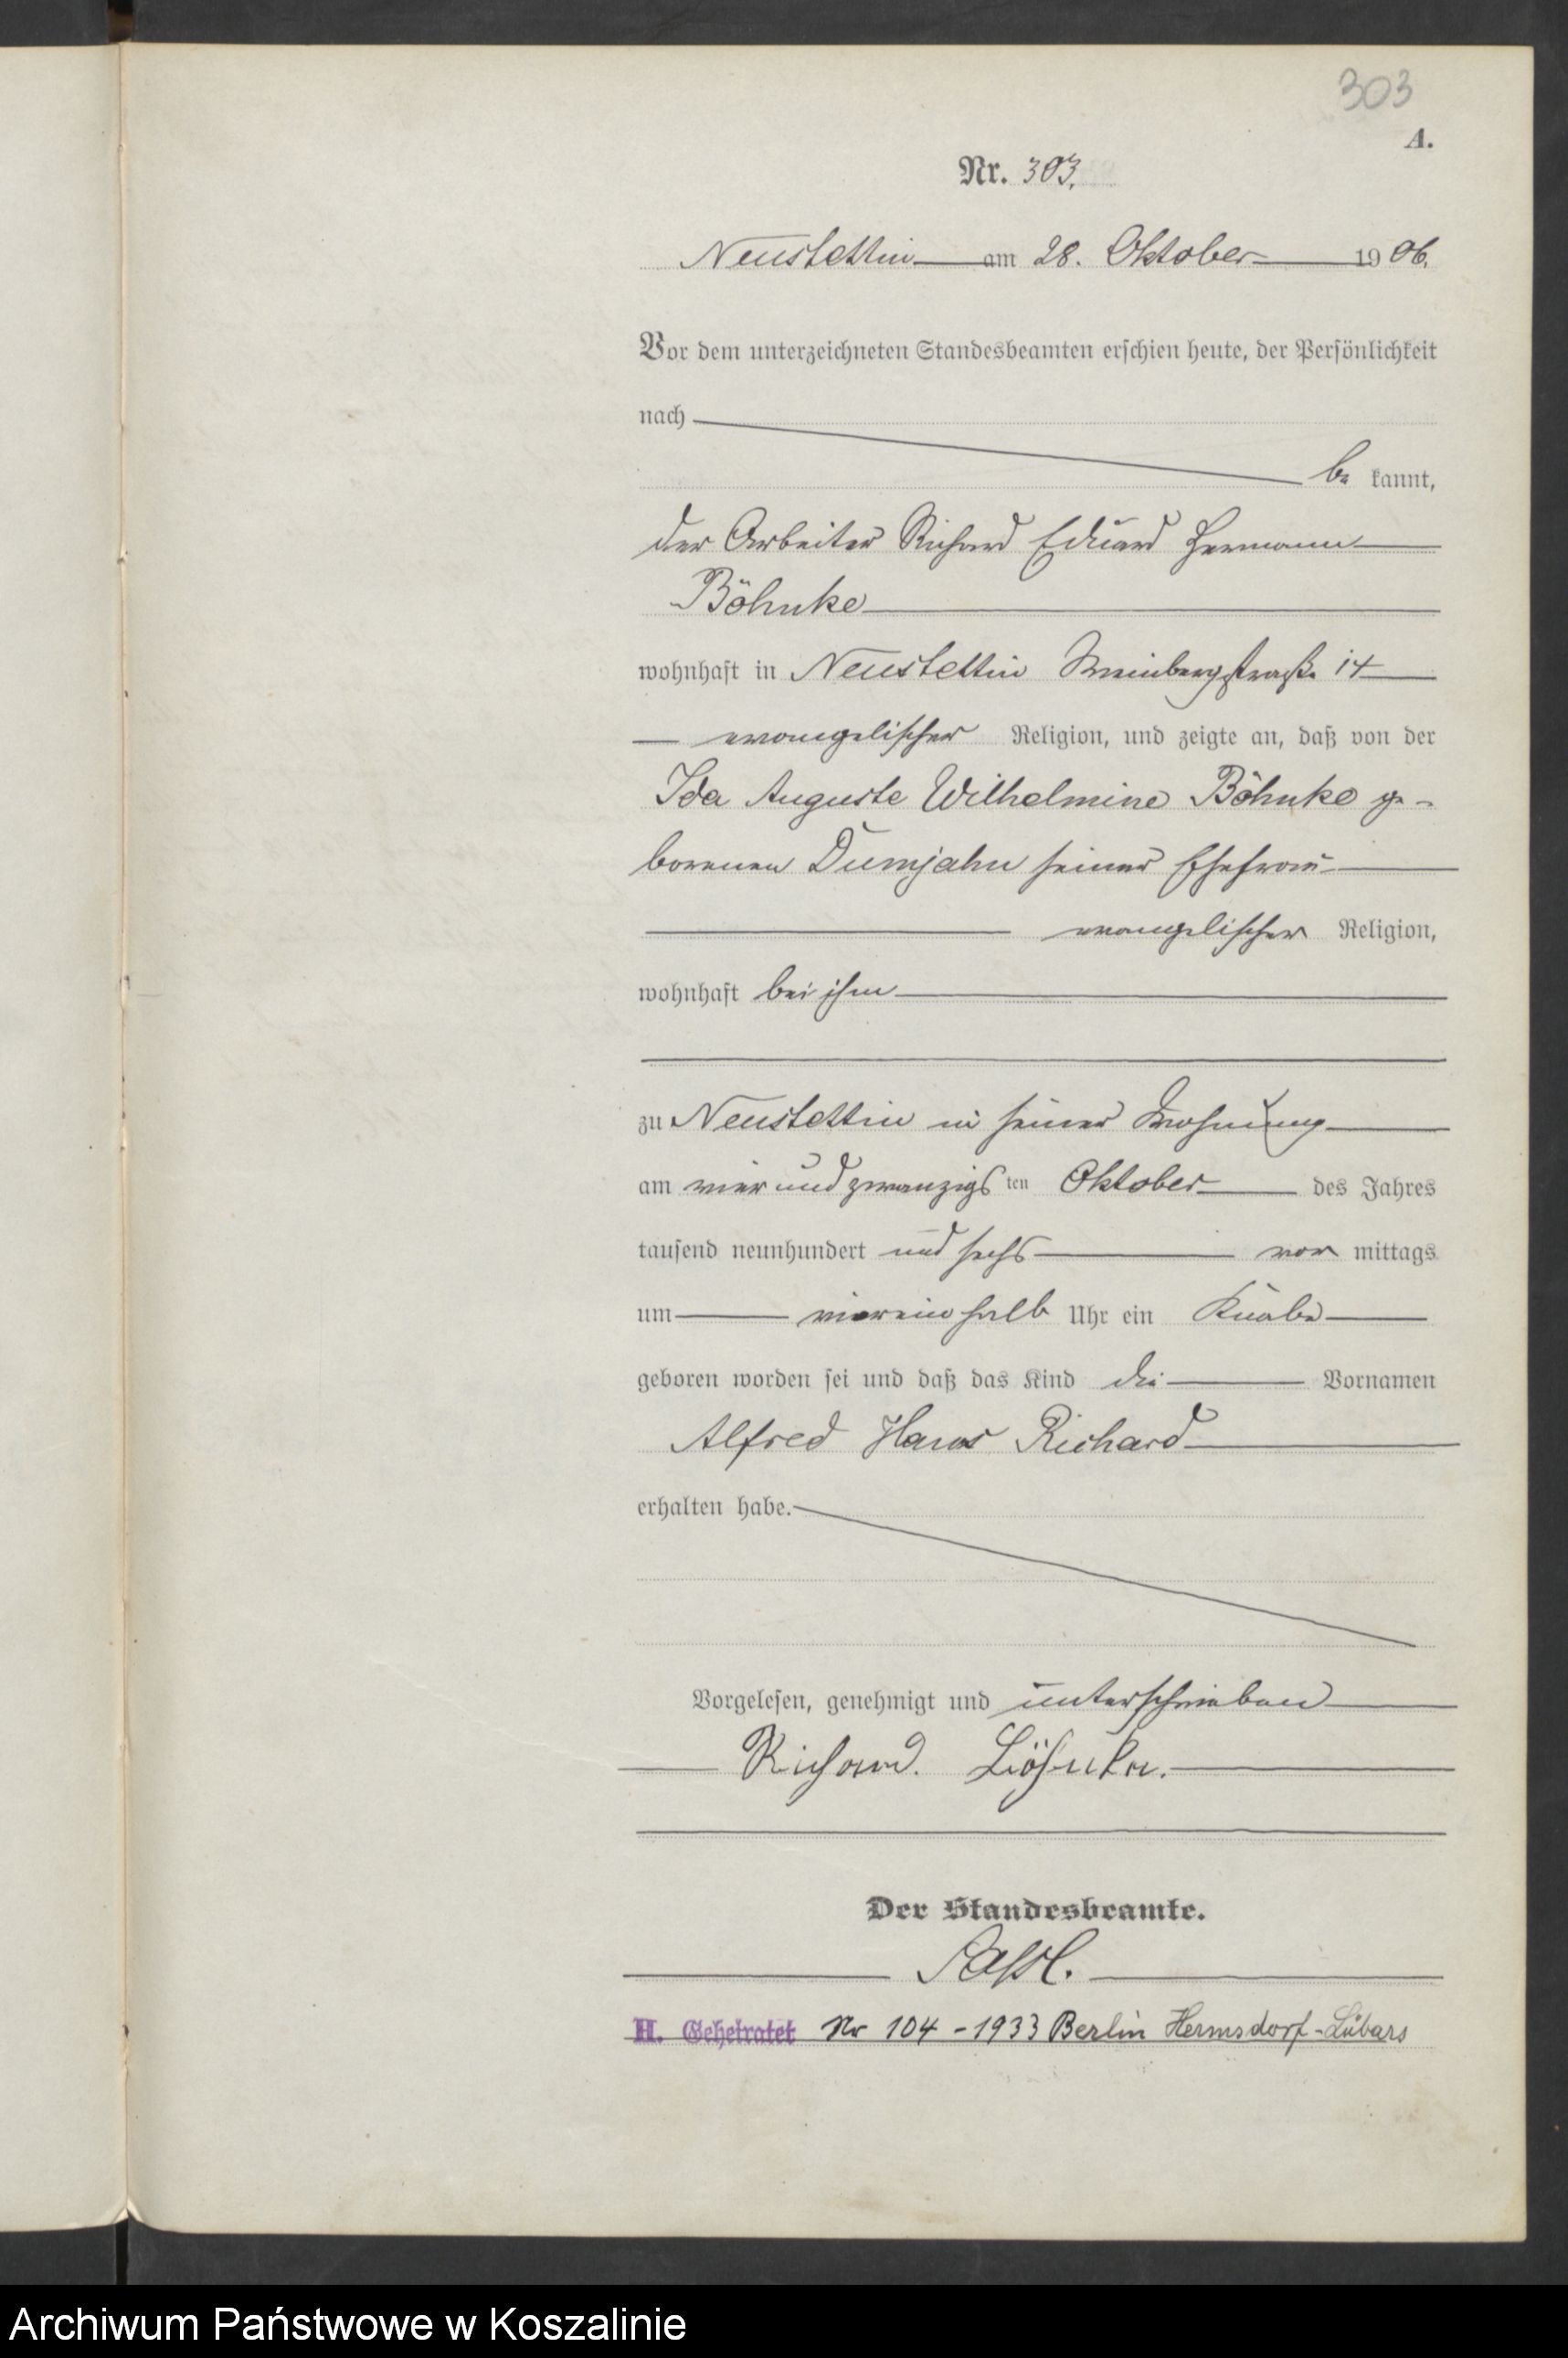 303
A.
Nr. 303.
Neustettin am 28. Oktober 1906.
Vor dem unterzeichneten Standesbeamten erschien heute, der Persönlichkeit
nach
be kannt,
der Arbeiter Richard Eduard Hermann
Böhnke
wohnhaft in Neustettin Weinbergstraße 14
evangelischer Religion, und zeigte an, daß von der
Ida Auguste Wilhelmine Böhnke ge-
borenen Dumjahn seiner Ehefrau
evangelischer Religion,
wohnhaft bei ihm
zu Neustettin in seiner Wohnung
am vier und zwanzigs ten Oktober des Jahres
tausend neunhundert und sechs vor mittags
um viereinhalb Uhr ein Knabe
geboren worden sei und daß das Kind die Vornamen
Alfred Hans Richard
erhalten habe.
Vorgelesen, genehmigt und unterschrieben
Richard. Böhnke.
Der Standesbeamte.
H. Geheiratet Nr 104 - 1933 Berlin Hermsdorf-Lübars
Archiwum Państwowe w Koszalinie